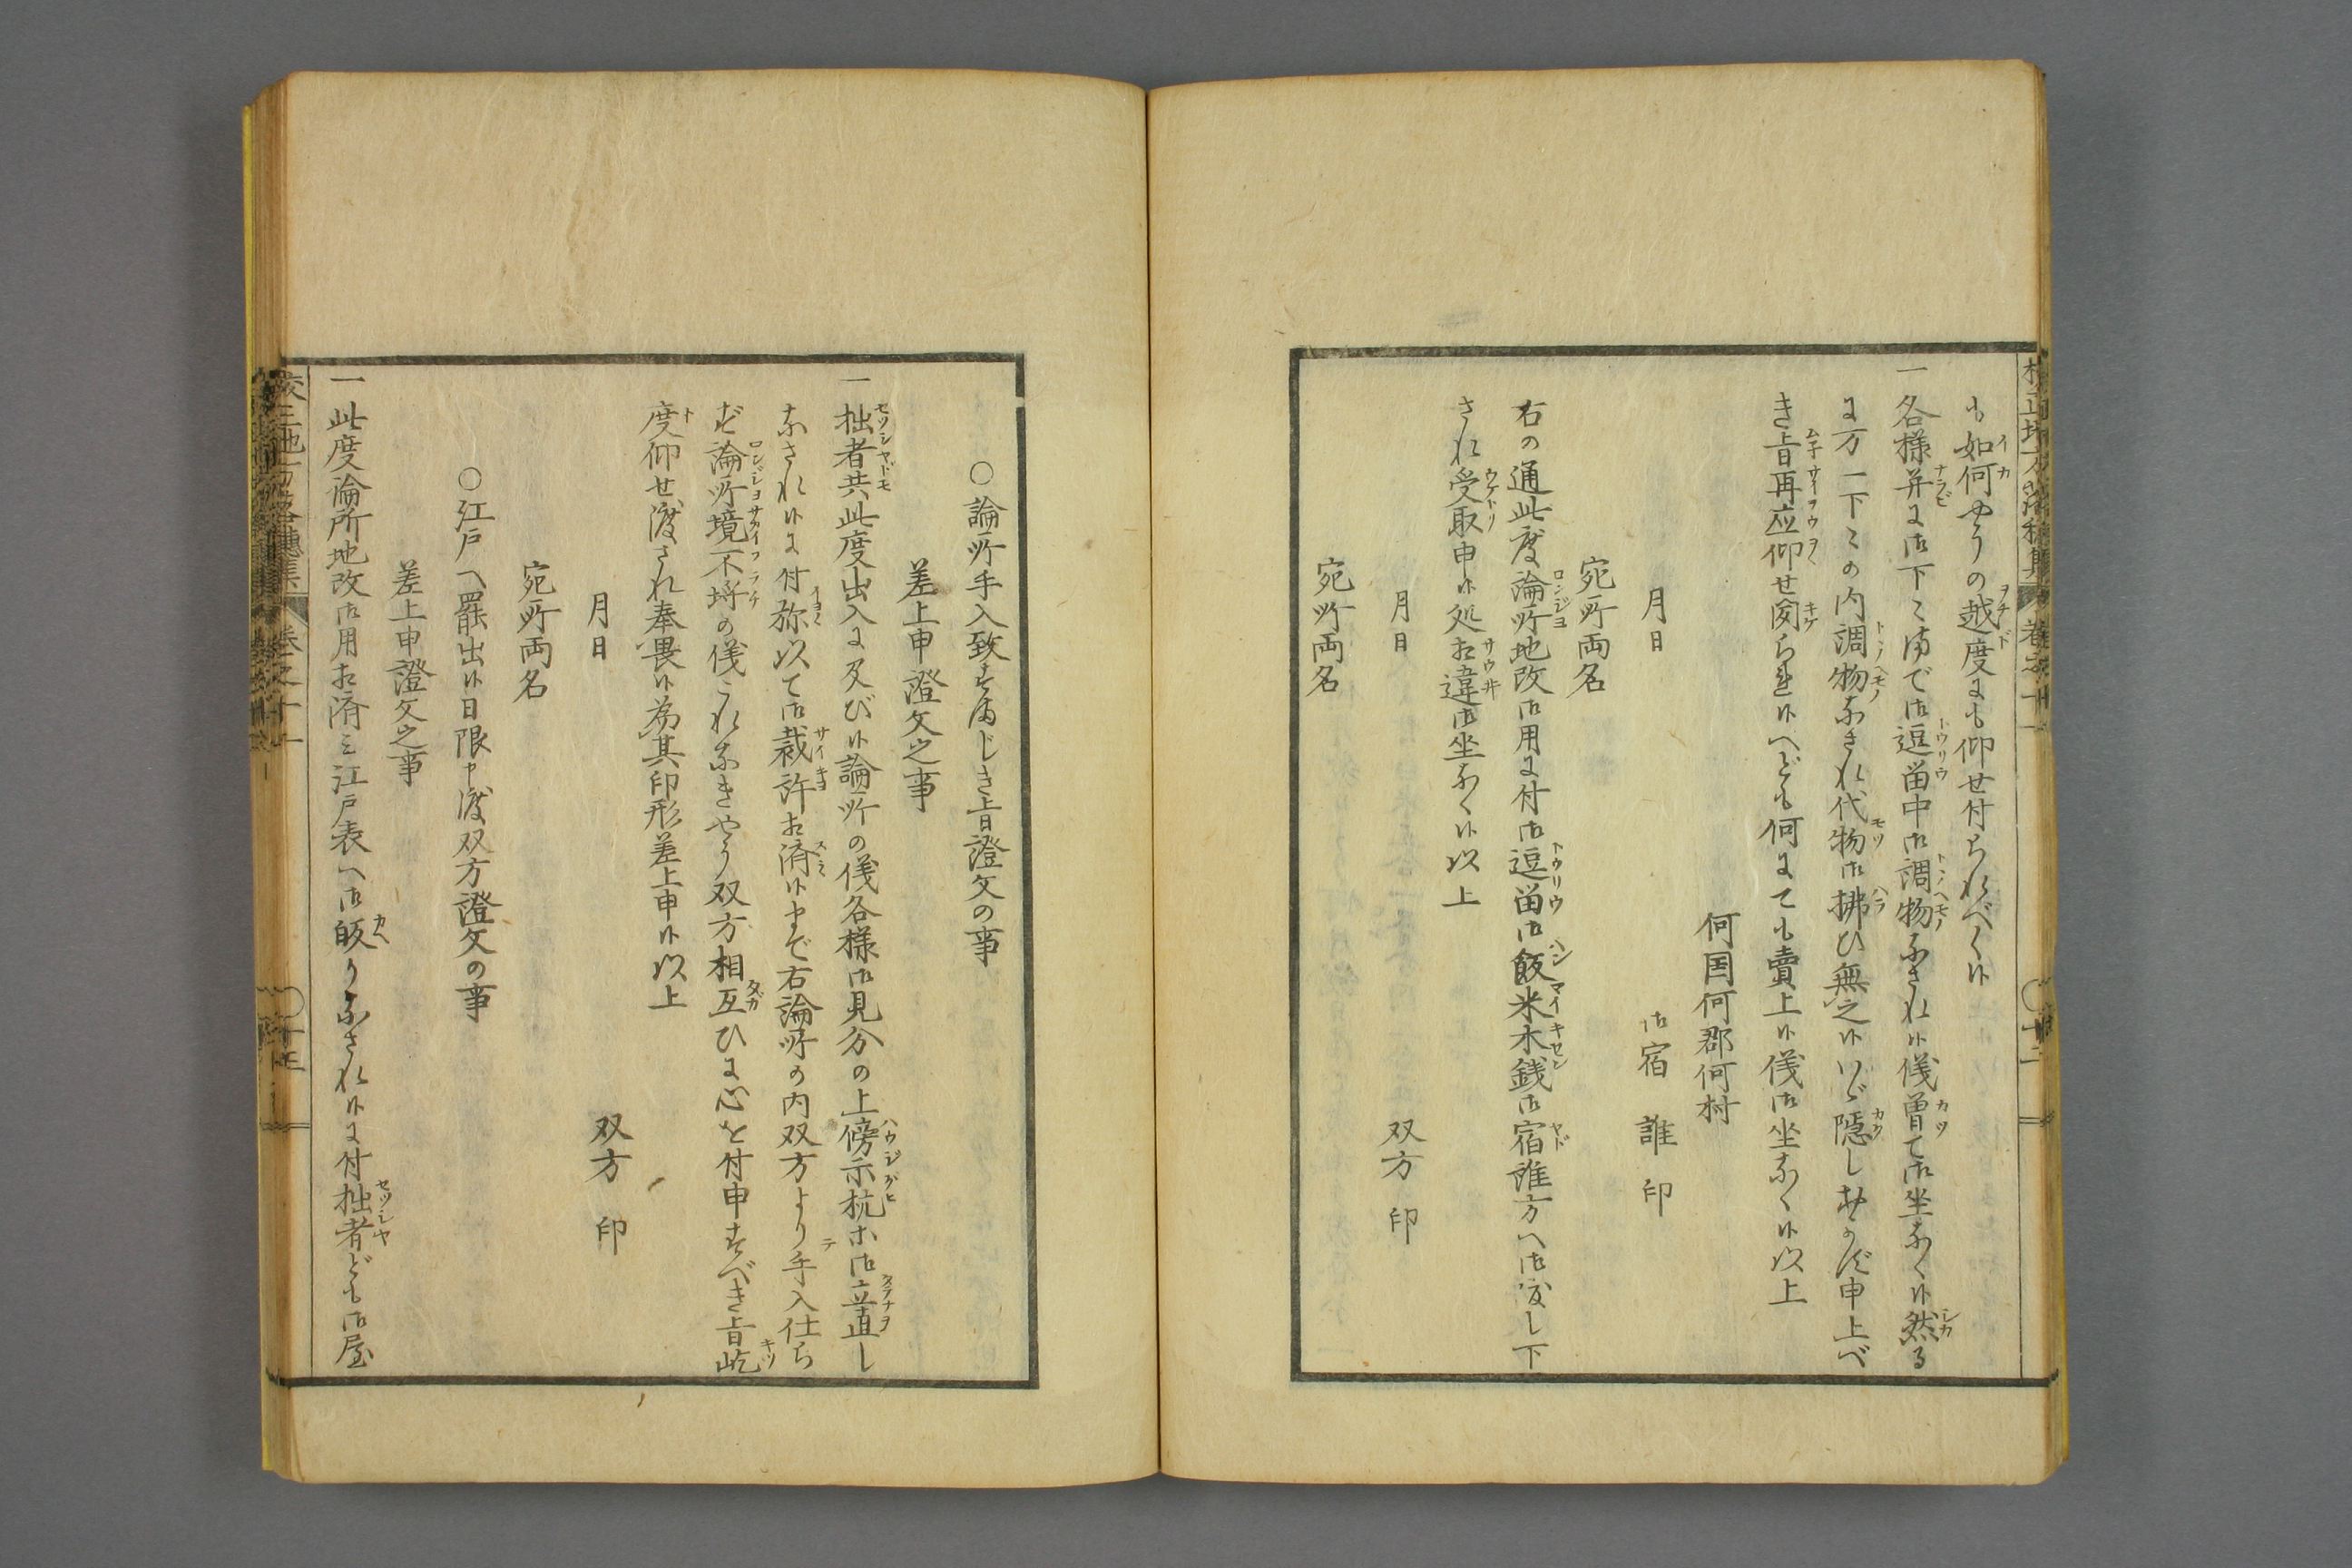 も如何やうの越度にも仰せ付られべく候
一各様并に御下々迄で御逗留中御調物なされ候儀曽て御坐なく候然る
に万一下々の内調物なされ代物御拂ひ無之候はゞ隠しおかず申上べ
き旨再応仰せ聞られ候へども何にても賣上候儀御坐なく候以上
何国何郡何村
月日　御宿　誰　印
宛所両名
右の通此度論所地改御用に付御逗留御飯米木銭御宿誰方へ御渡し下
され受取申候処相違御坐なく候以上
月日　双方　印
宛所両名
○論所手入致すまじき旨證文の事
差上申證文之事
一拙者共此度出入に及び候論所の儀各様御見分の上傍示杭等御立直し
なされ候に付弥以て御裁許相済候まで右論所の内双方より手入仕ら
ず論所境不埒の儀これなきやう双方相互ひに心を付申すべき旨屹
度仰せ渡され奉畏候為其印形差上申候以上
月日　双方　印
宛所両名
○江戸へ罷出候日限申渡双方證文の事
差上申證文之事
一此度論所地改御用相済み江戸表へ御皈りなされ候に付拙者ども御屋